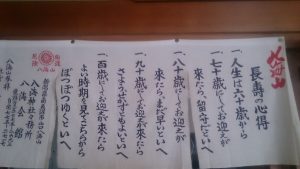 八海山
長寿の心得
一、人生は六十歳から
一、七十歳にしてお迎えが
来たら、留守だといへ
一、八十歳にしてお迎えが
来たらまだ早いといへ
一、九十歳にしてお迎えが来たら
さようせかずともよいといへ
一、百歳にしてお迎えが来たら
よい時期を見てこちらから
ぼつぼつゆくといへ
八海山
八海神社々務所
八海会館